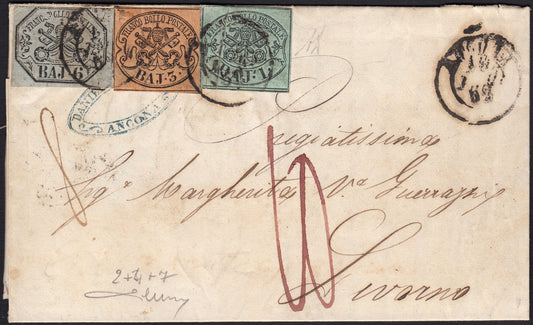 FRANCO BOLLO
BAJ 6
FRANCO BOLLO POSTALE
BAJ. 3.
FRANCO BOLLO POSTALE
BAJ. 1.
DANIE
ANCONA
Pregiatissima
Sigª Margherita Vª Guerrazzi
Livorno
8
10
2+4+7